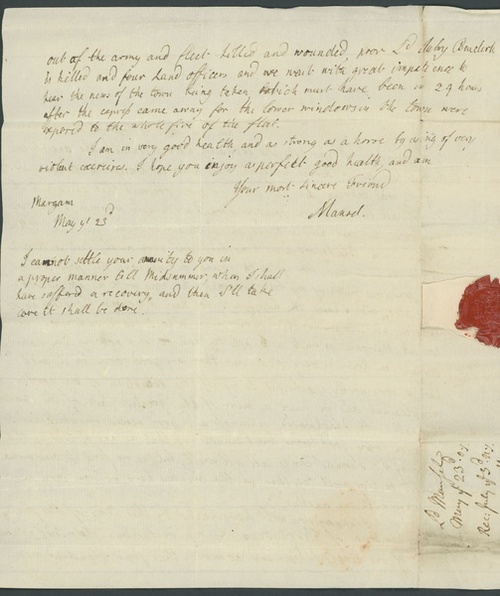 out of the army and fleet killed and wounded, poor Ld Aubry Beauclerk
is killed and four Land officers and we wait with great impatience to
hear the news of the town being taken, which must have been in 24 hours
after the express came away for the lower windows in the town were
exposed to the whole fire of the fleet.
I am in very good health and as strong as a horse by using of very
violent exercises. I hope you enjoy a perfect good health, and am
Your most sincere Friend
Mansel.
Margam
May ye 23d
I cannot settle your annuity to you in
a proper manner till Midsummer, when I shall
have sufferd a recovery, and then I'll take
care it shall be done.
Ld Mansel's
May ye 23d
Rec: July ye 3d